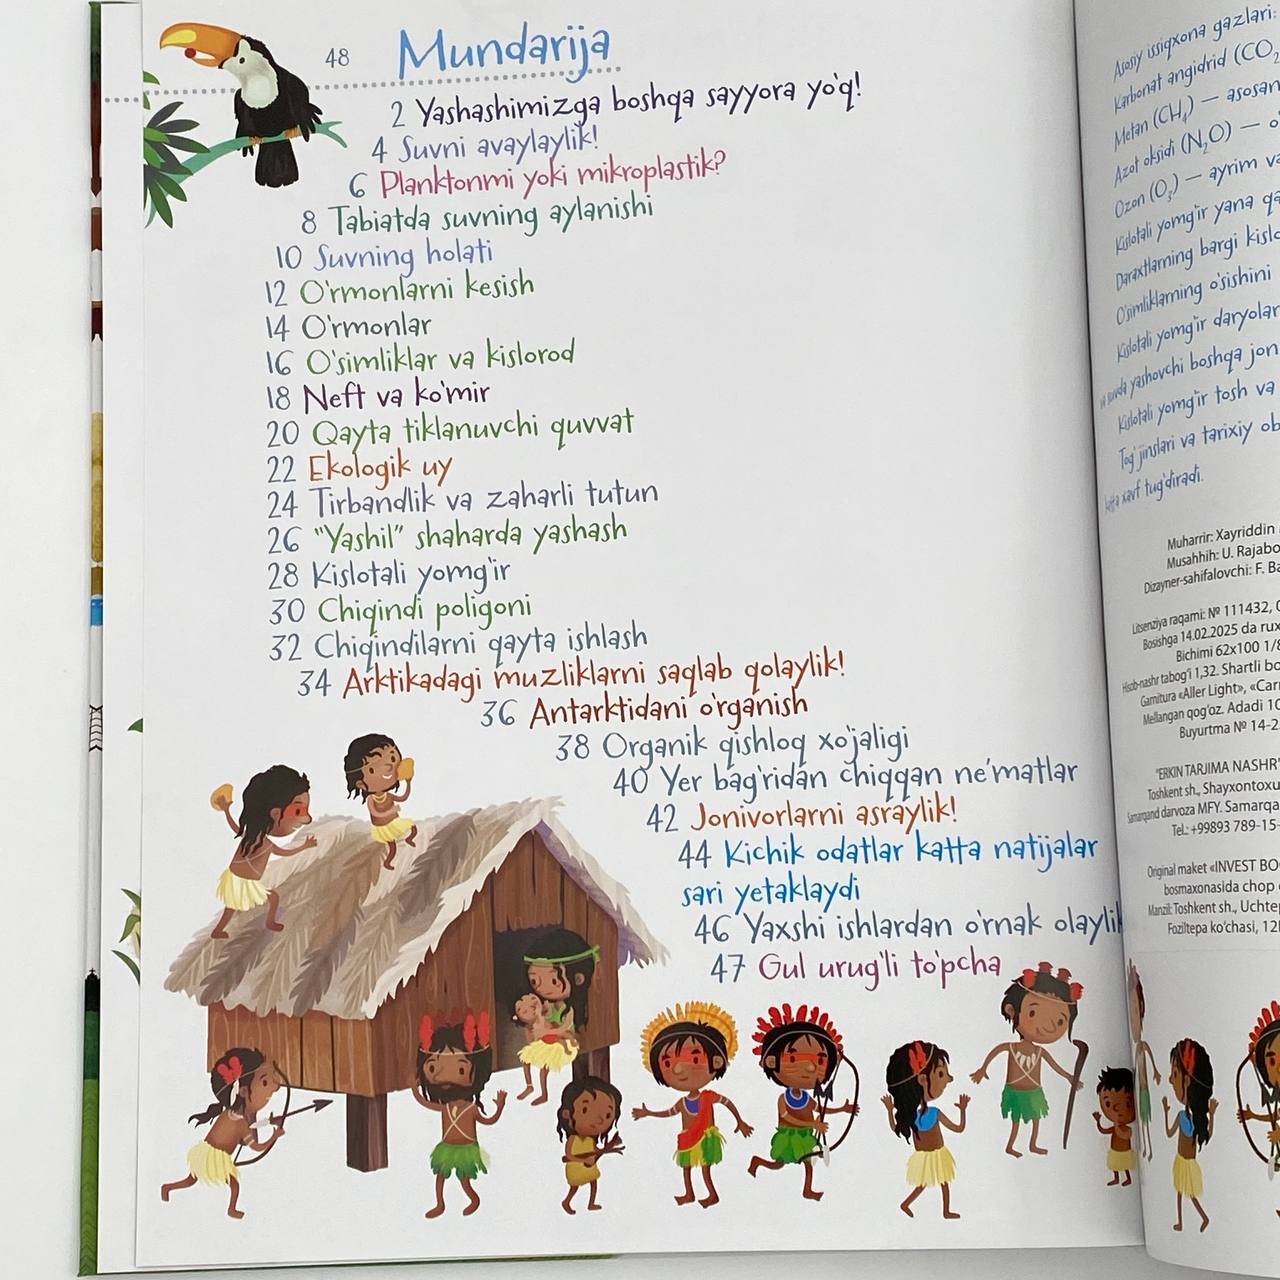 48 Mundarija
2 Yashashimizga boshqa sayyora yo'q!
4 Suvni avaylaylik!
6 Planktonmi yoki mikroplastik?
8 Tabiatda suvning aylanishi
10 Suvning holati
12 O'rmonlarni kesish
14 O'rmonlar
16 O'simliklar va kislorod
18 Neft va ko'mir
20 Qayta tiklanuvchi quvvat
22 Ekologik uy
24 Tirbandlik va zaharli tutun
26 "Yashil" shaharda yashash
28 Kislotali yomg'ir
30 Chiqindi poligoni
32 Chiqindilarni qayta ishlash
34 Arktikadagi muzliklarni saqlab qolaylik!
36 Antarktidani o'rganish
38 Organik qishloq xo'jaligi
40 Yer bag'ridan chiqqan ne'matlar
42 Jonivorlarni asraylik!
44 Kichik odatlar katta natijalar
sari yetaklaydi
46 Yaxshi ishlardan o'rnak olaylik
47 Gul urug'li to'pcha
Asosiy issiqxona gazlari:
Karbonat angidrid (CO2
Metan (CH4) — asosan
Azot oksidi (N2O) —
Ozon (O3) — ayrim
Kislotali yomg'ir yana
Daraxtlarning bargi
O'simliklarning o'sishini
Kislotali yomg'ir
va suvda yashovchi boshqa
Kislotali yomg'ir tosh va
Tog' jinslari va tarixiy
katta xavf tug'diradi.
Muharrir: Xayriddin
Musahhih: U.
Dizayner-sahifalovchi: F.
Litsenziya raqami: № 111432,
Bosishga 14.02.2025 da
Bichimi 62x100
Hisob-nashr tabog'i 1,32. Shartli
Garnitura «Aller Light»,
Mellangan qog'oz. Adadi
Buyurtma №
"ERKIN TARJIMA NASHR"
Toshkent sh.,
Samarqand darvoza MFY.
Tel.: +99893 789-15-
Original maket «INVEST
bosmaxonasida chop
Manzil: Toshkent sh.,
Foziltepa ko'chasi,